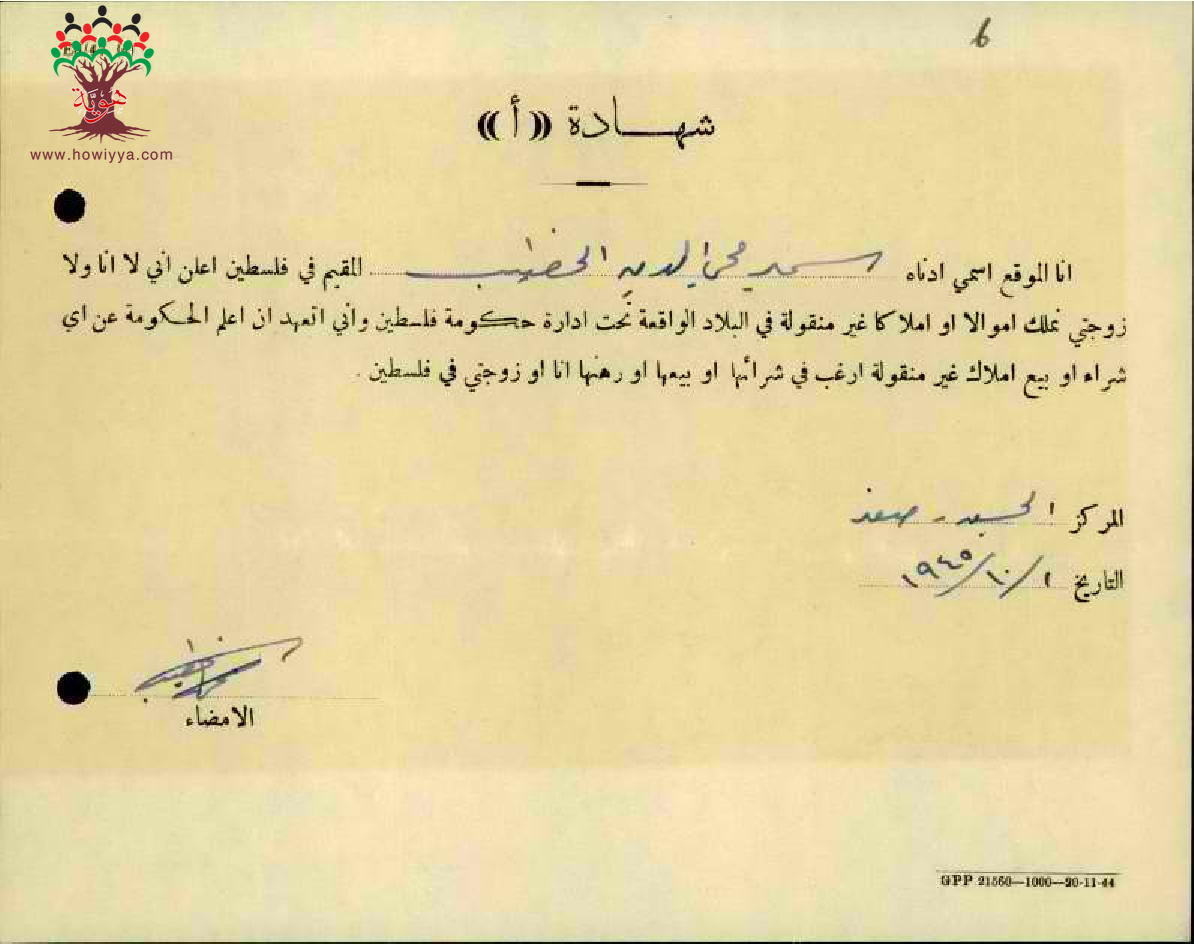 6
هوية
www.howiyya.com
شهـــادة «أ»
انا الموقع اسمي ادناه محي الدين الخطيب المقيم في فلسطين اعلن اني لا انا ولا
زوجتي نملك اموالا او املاكا غير منقولة في البلاد الواقعة تحت ادارة حكومة فلسطين واني اتعهد ان اعلم الحكومة عن اي
شراء او بيع املاك غير منقولة ارغب في شرائها او بيعها او رهنها انا او زوجتي في فلسطين .
المركز صفد
التاريخ ١/١٠/١٩٤٥
الامضاء
GPP 21560—1000—20-11-44